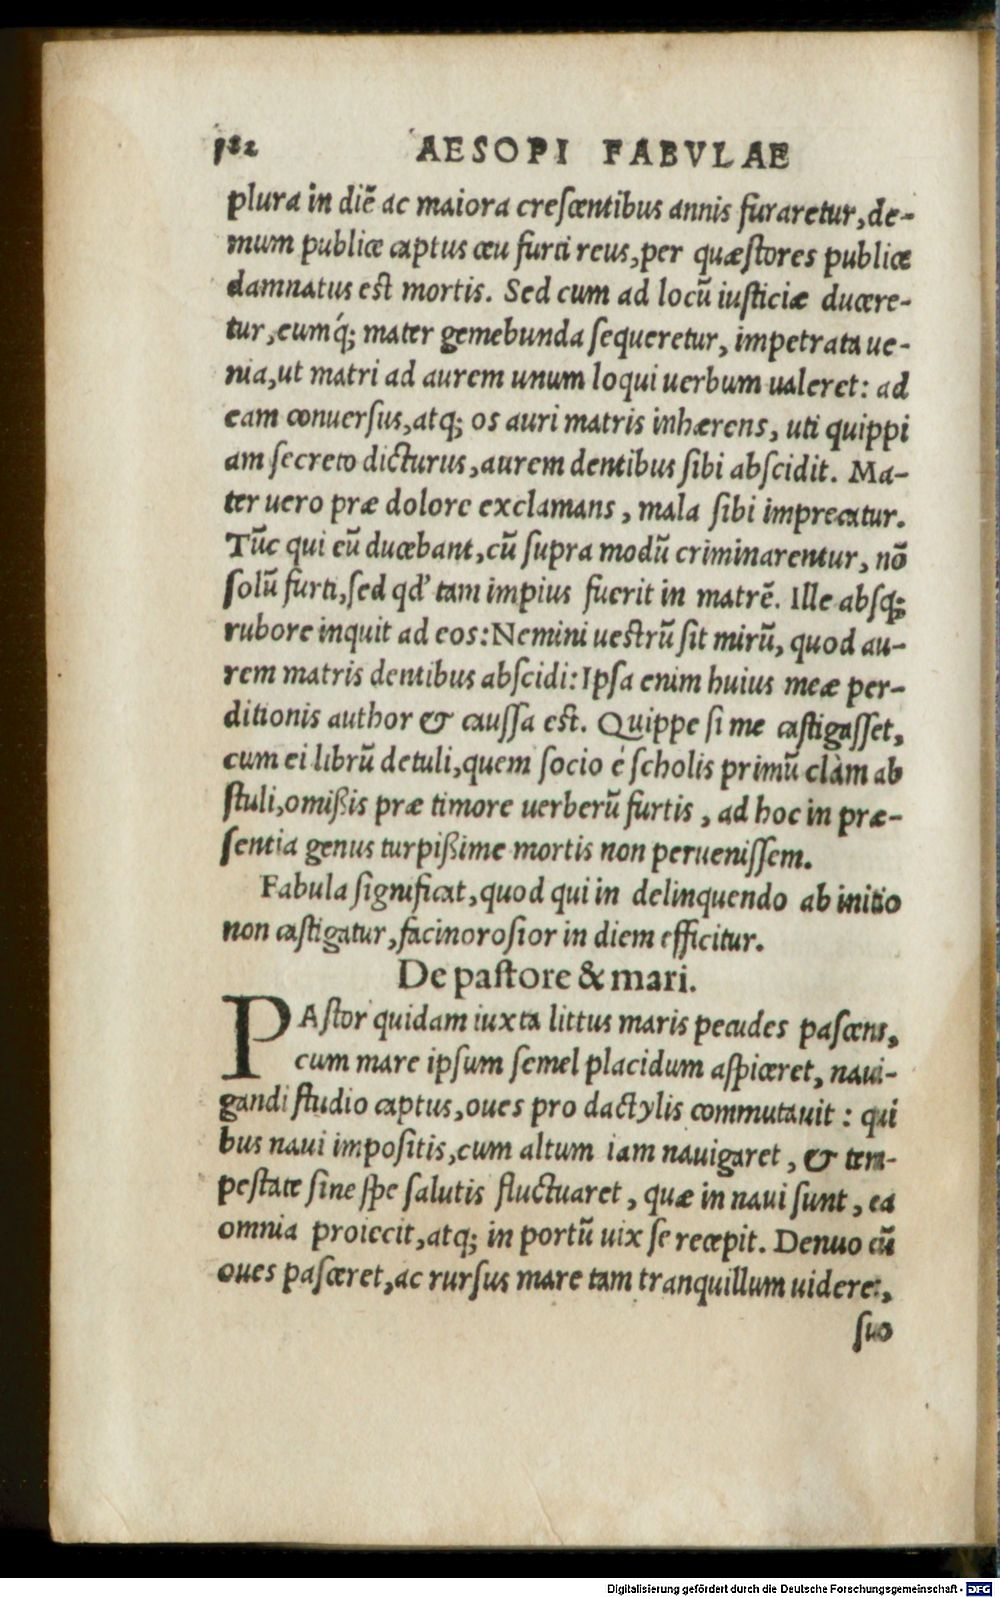 182 AESOPI FABVLAE
plura in diē ac maiora creſcentibus annis furaretur, de-
mum publice captus ceu furti reus, per quæſtores publice
damnatus est mortis. Sed cum ad locū iuſticiæ ducere-
tur, eumq́; mater gemebunda ſequeretur, impetrata ue-
nia, ut matri ad aurem unum loqui uerbum ualeret: ad
eam conuerſus, atq; os auri matris inhærens, uti quippi
am ſecreto dicturus, aurem dentibus ſibi abſcidit. Ma-
ter uero præ dolore exclamans, mala ſibi imprecatur.
Tūc qui eū ducebant, cū ſupra modū criminarentur, nō
ſolū furti, ſed qd' tam impius fuerit in matrē. Ille abſq;
rubore inquit ad eos: Nemini ueſtrū ſit mirū, quod au-
rem matris dentibus abſcidi: Ipſa enim huius meæ per-
ditionis author & cauſſa eſt. Quippe ſi me caſtigaſſet,
cum ei librū detuli, quem ſocio è ſcholis primū clàm ab
ſtuli, omißis præ timore uerberū furtis, ad hoc in præ-
ſentia genus turpißime mortis non perueniſſem.
Fabula ſignificat, quod qui in delinquendo ab initio
non caſtigatur, facinoroſior in diem efficitur.
De paſtore & mari.
PAſtor quidam iuxta littus maris pecudes paſcens,
cum mare ipſum ſemel placidum aſpiceret, naui-
gandi ſtudio captus, oues pro dactylis commutauit: qui
bus naui impoſitis, cum altum iam nauigaret, & tem-
peſtate ſine ſpe ſalutis fluctuaret, quæ in naui ſunt, ea
omnia proiecit, atq; in portū uix ſe recepit. Denuo cū
oues paſceret, ac rurſus mare tam tranquillum uideret,
ſuo
Digitalisierung gefördert durch die Deutsche Forschungsgemeinschaft - DFG